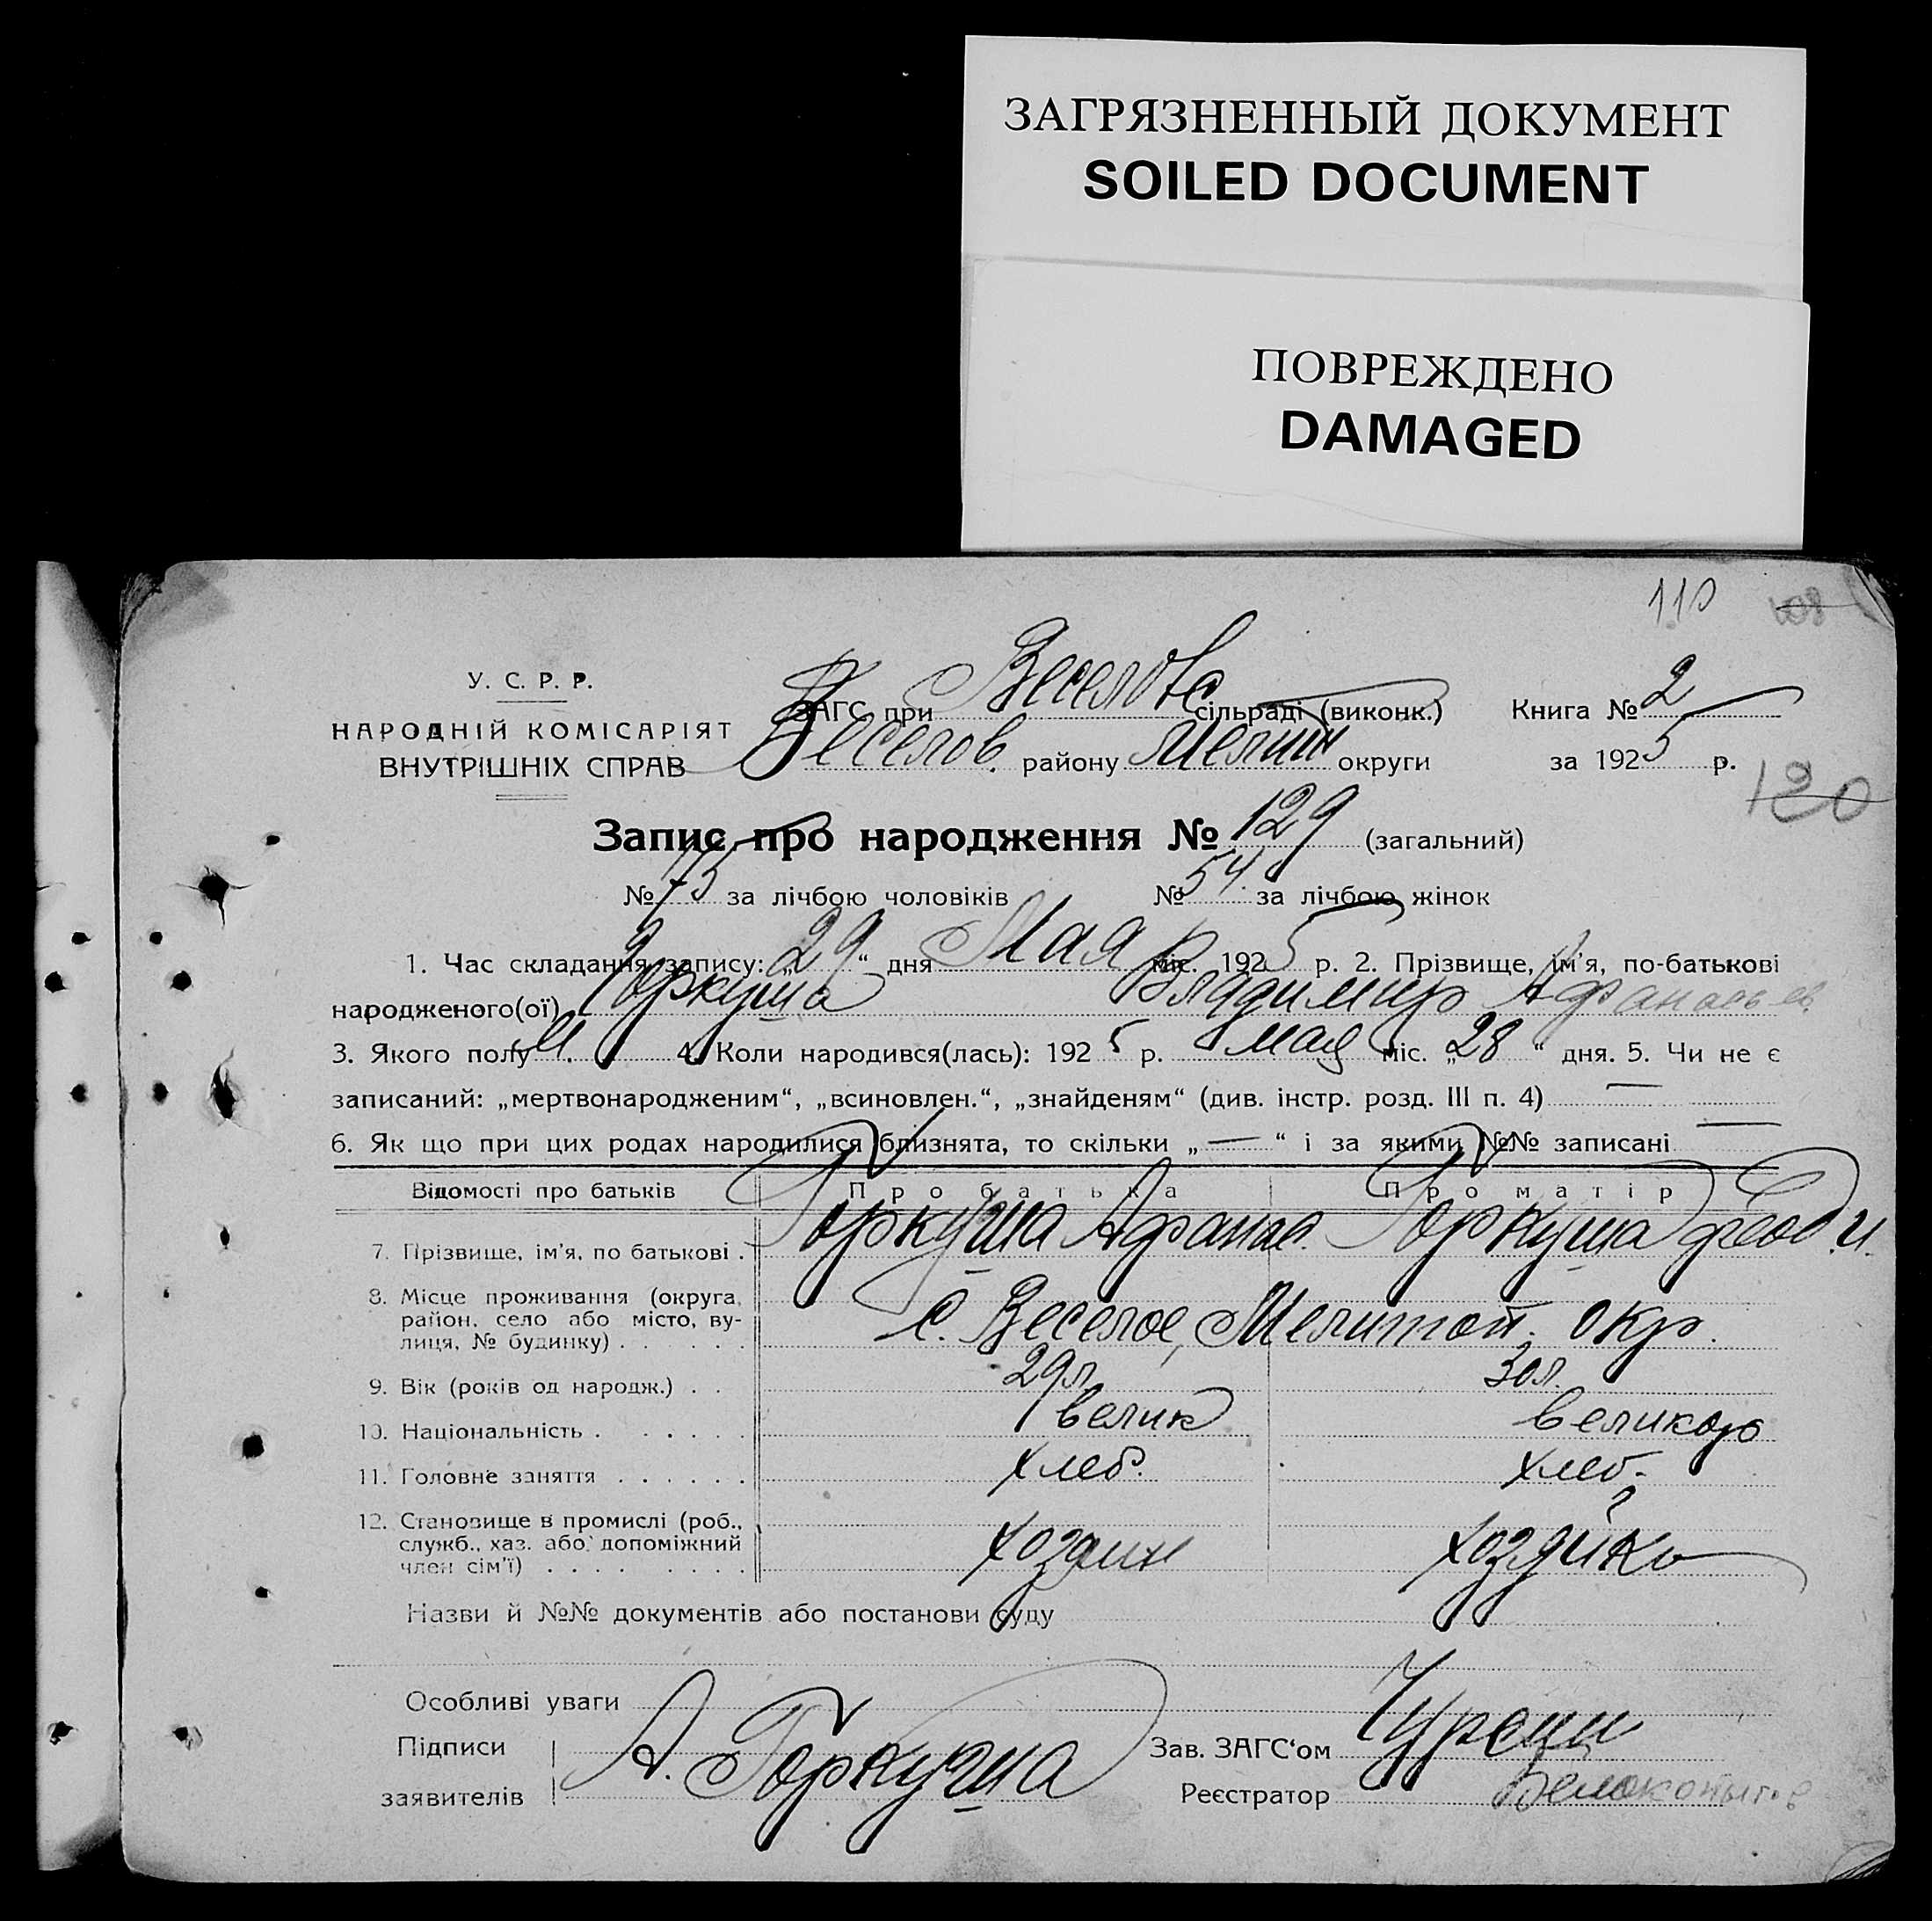 ЗАГРЯЗНЕННЫЙ ДОКУМЕНТ
SOILED DOCUMENT
ПОВРЕЖДЕНО
DAMAGED
110 108
У. С. Р. Р.
НАРОДНІЙ КОМІСАРІЯТ
ВНУТРІШНІХ СПРАВ
ЗАГС при Веселов сільраді (виконк.)
Веселов. району Мелит округи
Книга № 2
за 1925 р.
120
Запис про народження № 129 (загальний)
№ 75 за лічбою чоловіків № 54. за лічбою жінок
1. Час складання запису: „29“ дня Мая міс. 1925 р. 2. Прізвище, ім'я, по-батькові
народженого(ої) Горкуша Владимир Афанасьев.
3. Якого полу М. 4. Коли народився(лась): 1925 р. мая міс. „28“ дня. 5. Чи не є
записаний: „мертвонародженим“, „всиновлен.“, „знайденям“ (див. інстр. розд. III п. 4) —
6. Як що при цих родах народилися близнята, то скільки „—“ і за якими №№ записані —
Відомості про батьків Про батька Про матір
7. Прізвище, ім'я, по батькові . Горкуша Афанас. Горкуша
8. Місце проживання (округа,
район, село або місто, ву-
лиця, № будинку) . . . . . . с. Веселое, Мелитоп. окр.
9. Вік (років од народж.) . . 29 л. 30 л.
10. Національність . . . . . . велик великор
11. Головне заняття . . . . . . хлеб. хлеб.
12. Становище в промислі (роб.,
служб., хаз. або допоміжний
член сім'ї) . . . . . . . . хозяин хозяйка
Назви й №№ документів або постанови суду
Особливі уваги
Підписи
заявителів А. Горкуша
Зав. ЗАГС‘ом
Реєстратор Белокопытов